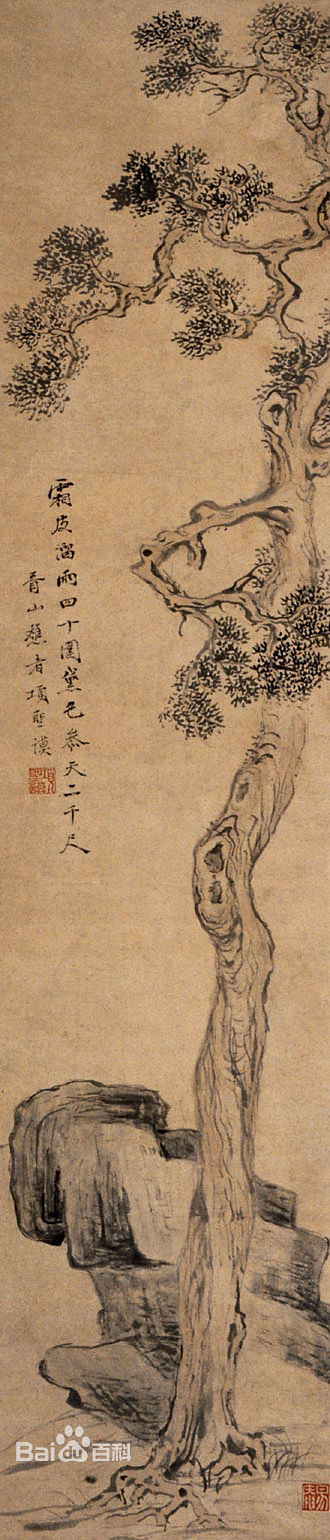 霜皮溜雨四十圍黛色參天二千尺
青山樵者項聖謨
Baidu百科